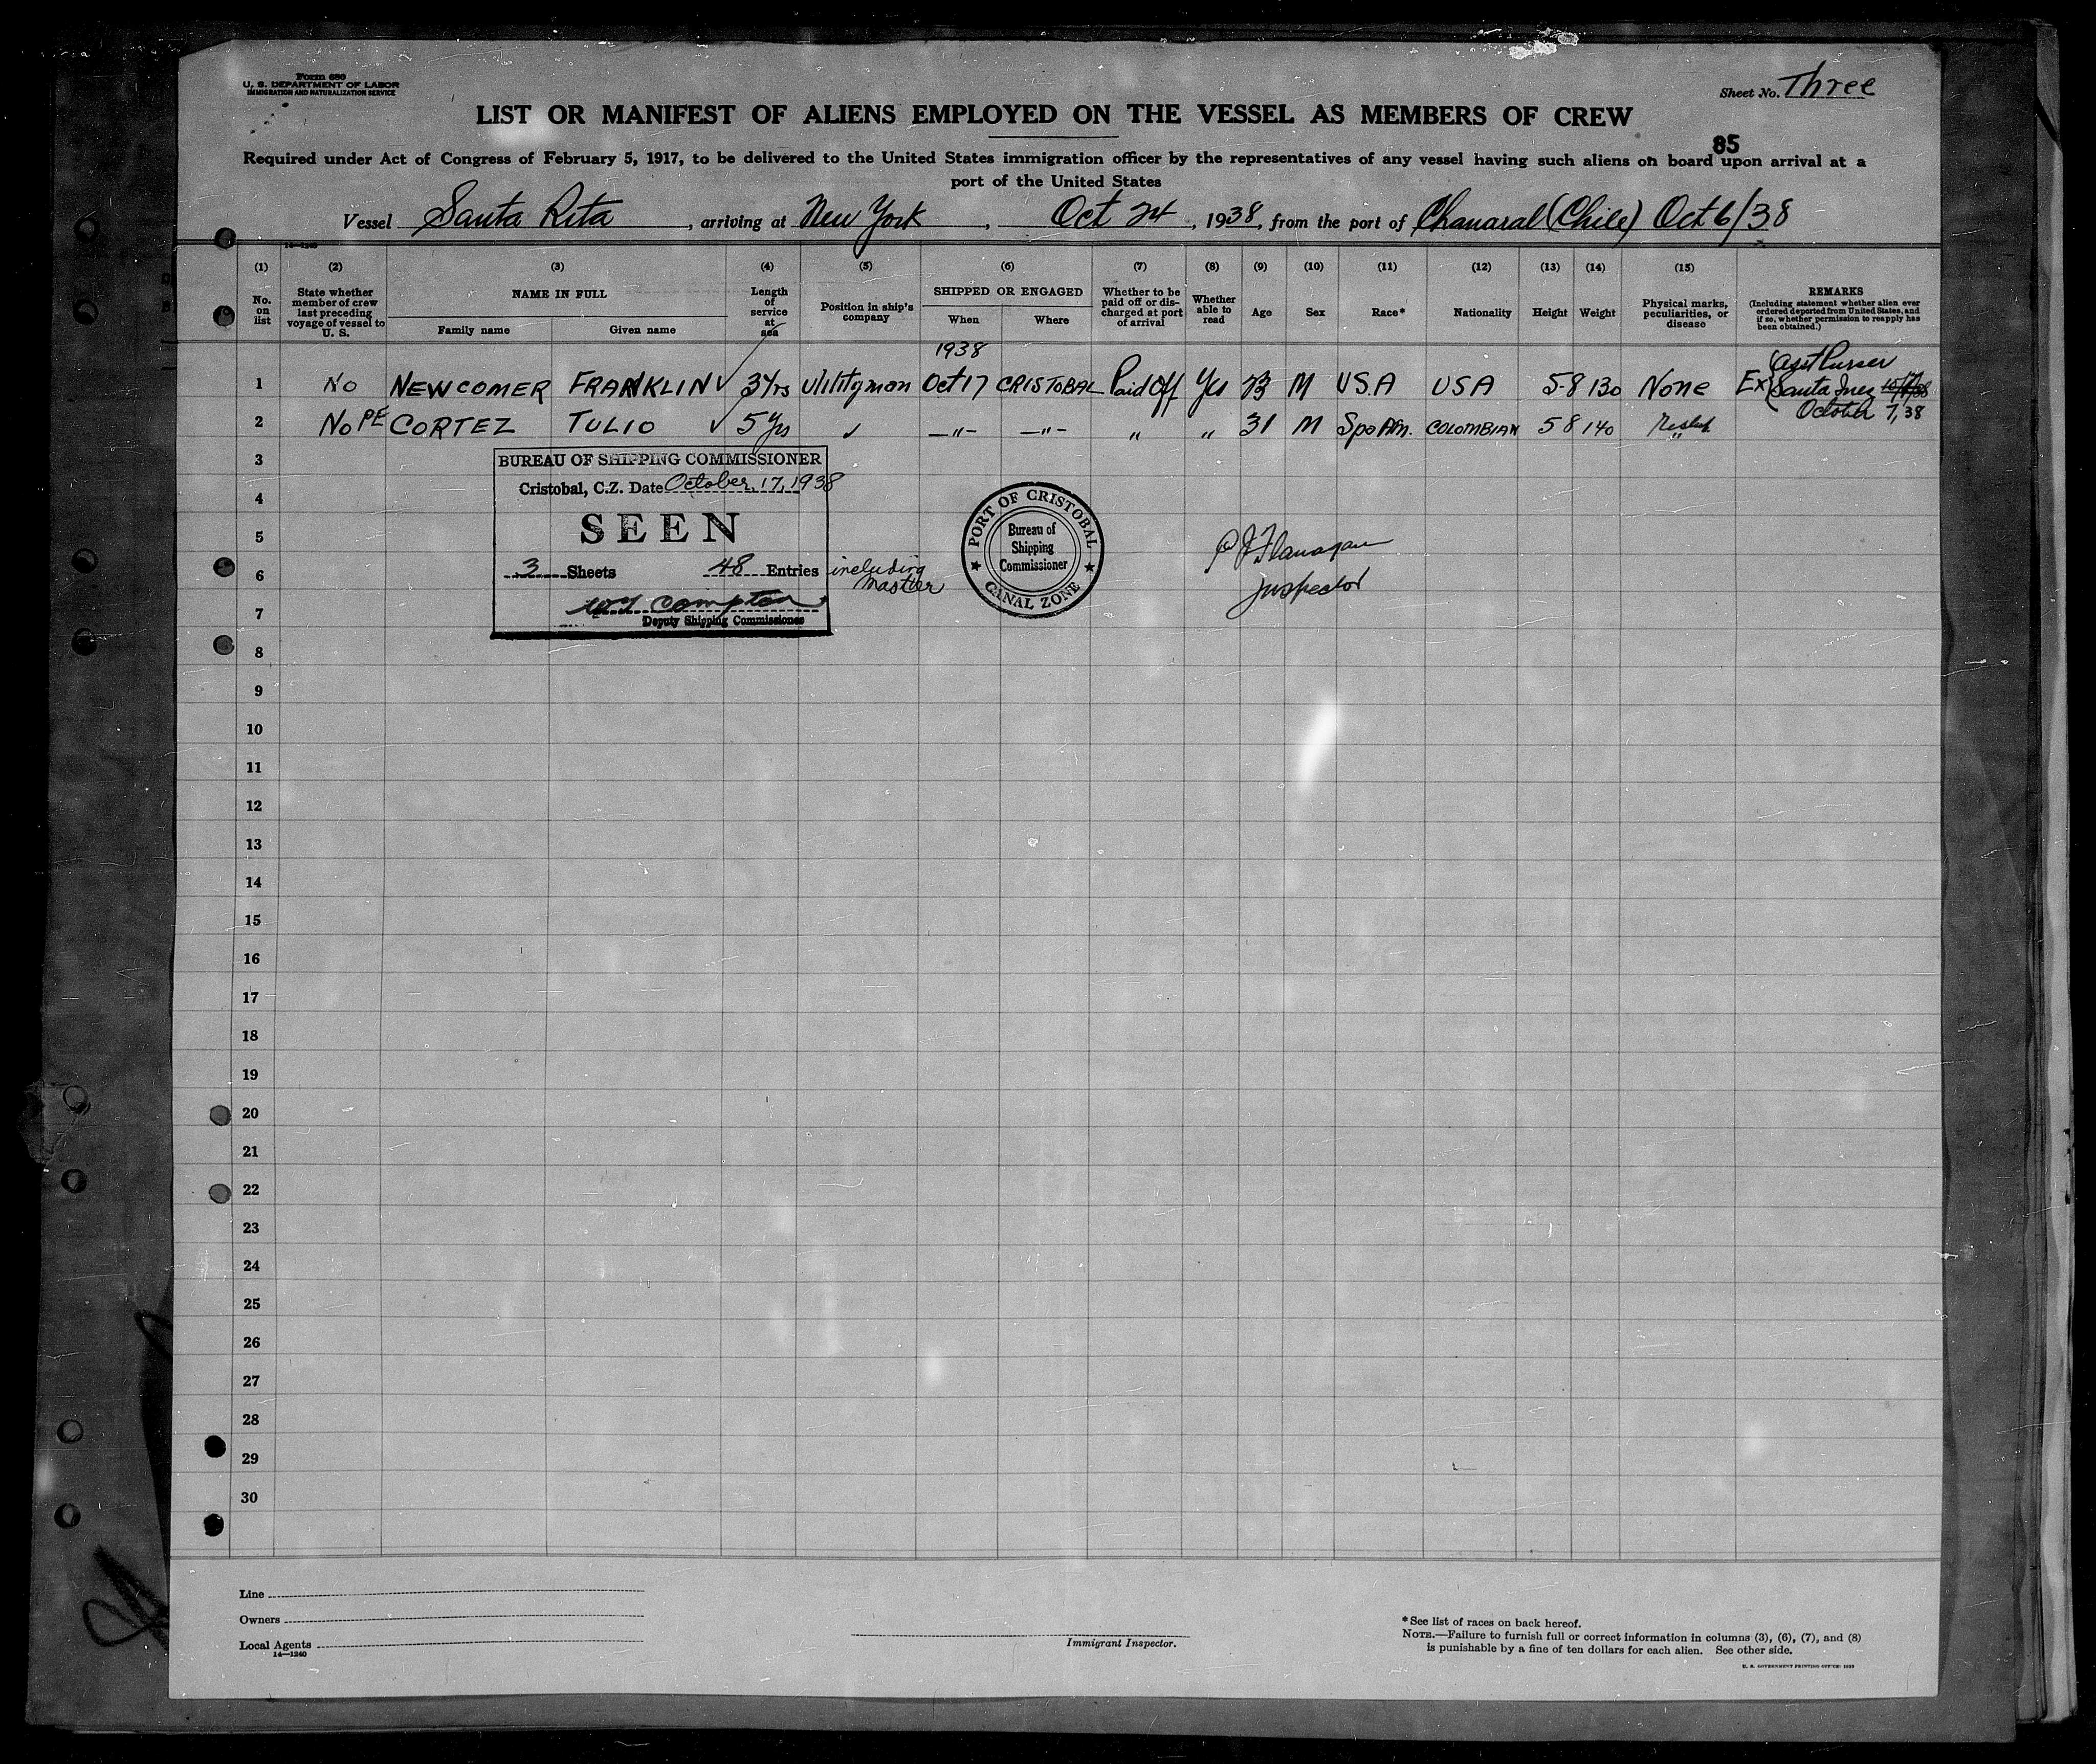 Form 680
U. S. DEPARTMENT OF LABOR
IMMIGRATION AND NATURALIZATION SERVICE
Sheet No. Three
LIST OR MANIFEST OF ALIENS EMPLOYED ON THE VESSEL AS MEMBERS OF CREW
85
Required under Act of Congress of February 5, 1917, to be delivered to the United States immigration officer by the representatives of any vessel having such aliens on board upon arrival at a
port of the United States
Vessel Santa Rita, arriving at New York, Oct 24, 1938, from the port of Chanaral (Chile) Oct 6/38
14—1240
(1) (2) (3) (4) (5) (6) (7) (8) (9) (10) (11) (12) (13) (14) (15)
No. on list
State whether member of crew last preceding voyage of vessel to U. S.
NAME IN FULL
Family name Given name
Length of service at sea
Position in ship's company
SHIPPED OR ENGAGED
When Where
Whether to be paid off or discharged at port of arrival
Whether able to read
Age
Sex
Race*
Nationality
Height
Weight
Physical marks, peculiarities, or disease
REMARKS
(Including statement whether alien ever ordered deported from United States, and if so, whether permission to reapply has been obtained.)
1938
1 No NEWCOMER FRANKLIN ✓ 3 Yrs Utilityman Oct 17 CRISTOBAL Paid Off Yes M U.S.A USA 5-8 130 None Ex Asst Purser
Santa Inez
October 7, 38
2 No PE CORTEZ TULIO ✓ 5 Yrs ✓ —"— —"— " " 31 M Span Am. COLOMBIAN 5 8 140 "
3
4
5
6
7
8
9
10
11
12
13
14
15
16
17
18
19
20
21
22
23
24
25
26
27
28
29
30
BUREAU OF SHIPPING COMMISSIONER
Cristobal, C.Z. Date October 17, 1938
SEEN
3 Sheets 48 Entries including
Master
Compton
Deputy Shipping Commissioner
PORT OF CRISTOBAL
Bureau of
Shipping
Commissioner
CANAL ZONE
P J Flanagan
Inspector
Line
Owners
Local Agents
14—1240
Immigrant Inspector.
*See list of races on back hereof.
NOTE.—Failure to furnish full or correct information in columns (3), (6), (7), and (8)
is punishable by a fine of ten dollars for each alien. See other side.
U. S. GOVERNMENT PRINTING OFFICE: